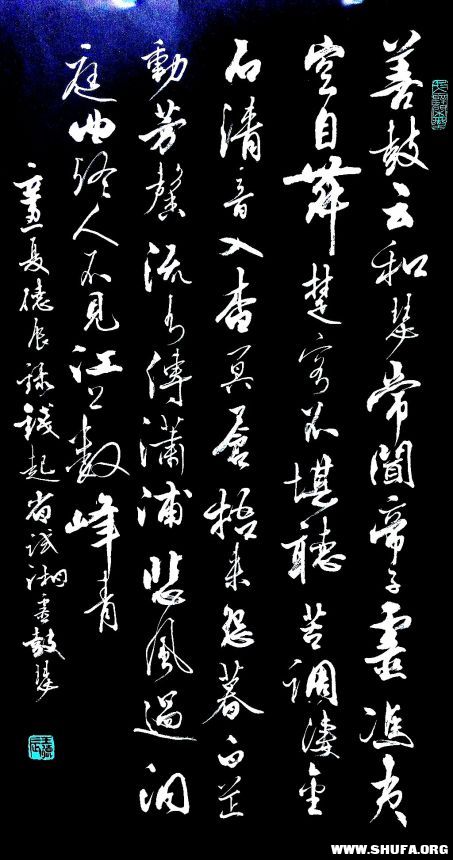 善鼓云和瑟常聞帝子靈馮夷
空自舞楚客不堪聽苦調淒金
石清音入杳冥蒼梧来怨慕白芷
動芳馨流水傳瀟浦悲風過洞
庭曲終人不見江上數峰青
夏德辰錄錢起省試湘靈鼓瑟
WWW.SHUFA.ORG